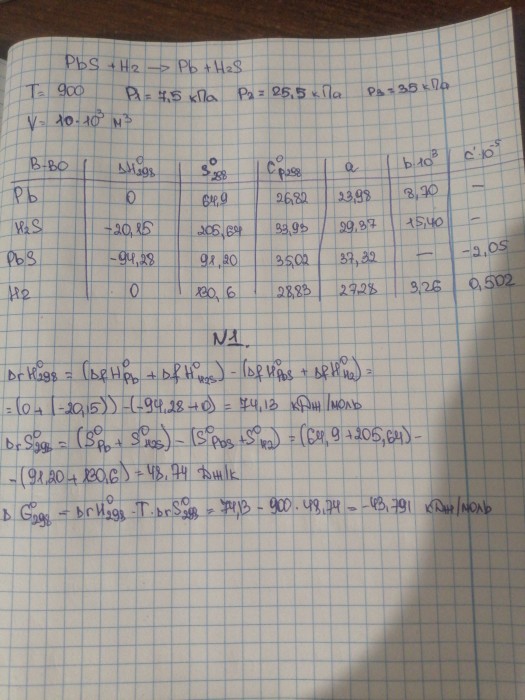 PbS + H2 → Pb + H2S
T = 900 P1 = 7,5 кПа P2 = 25,5 кПа P3 = 35 кПа
V = 10·10³ м³
В-во ΔH⁰298 S⁰298 C⁰p298 a b·10³ c'·10⁻⁵
Pb 0 64,9 26,82 23,98 8,70 —
H2S -20,15 205,64 33,93 29,37 15,40 —
PbS -94,28 91,20 35,02 37,32 — -2,05
H2 0 130,6 28,83 27,28 3,26 0,502
N1.
ΔrH⁰298 = (ΔfH⁰Pb + ΔfH⁰H2S) - (ΔfH⁰PbS + ΔfH⁰H2) =
= (0 + (-20,15)) - (-94,28 + 0) = 74,13 кДж/моль
ΔrS⁰298 = (S⁰Pb + S⁰H2S) - (S⁰PbS + S⁰H2) = (64,9 + 205,64) -
- (91,20 + 130,6) = 48,74 Дж/К
Δ G⁰298 = ΔrH⁰298 - T·ΔrS⁰298 = 74,13 - 900·48,74 = -43,791 кДж/моль